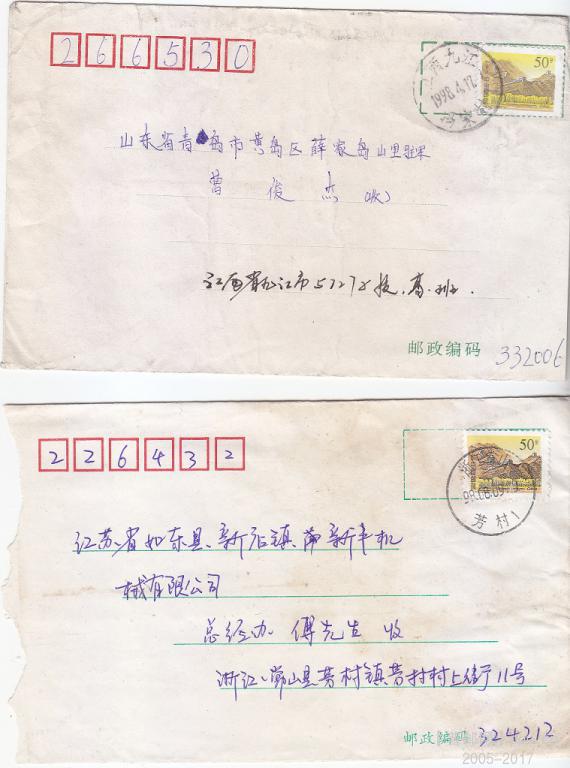 266530
50分
江西九江
1998.4.12
山东省青岛市黄岛区薛家岛山里驻军
曹俊杰(收)
江西省九江市57278
邮政编码 332006
226432
50分
98.08.09
芳村
江苏省如东县新店镇 新丰机
械有限公司
总经办 傅先生 收
浙江常山县芳村镇芳村村上街11号
邮政编码 324212
2005-2017